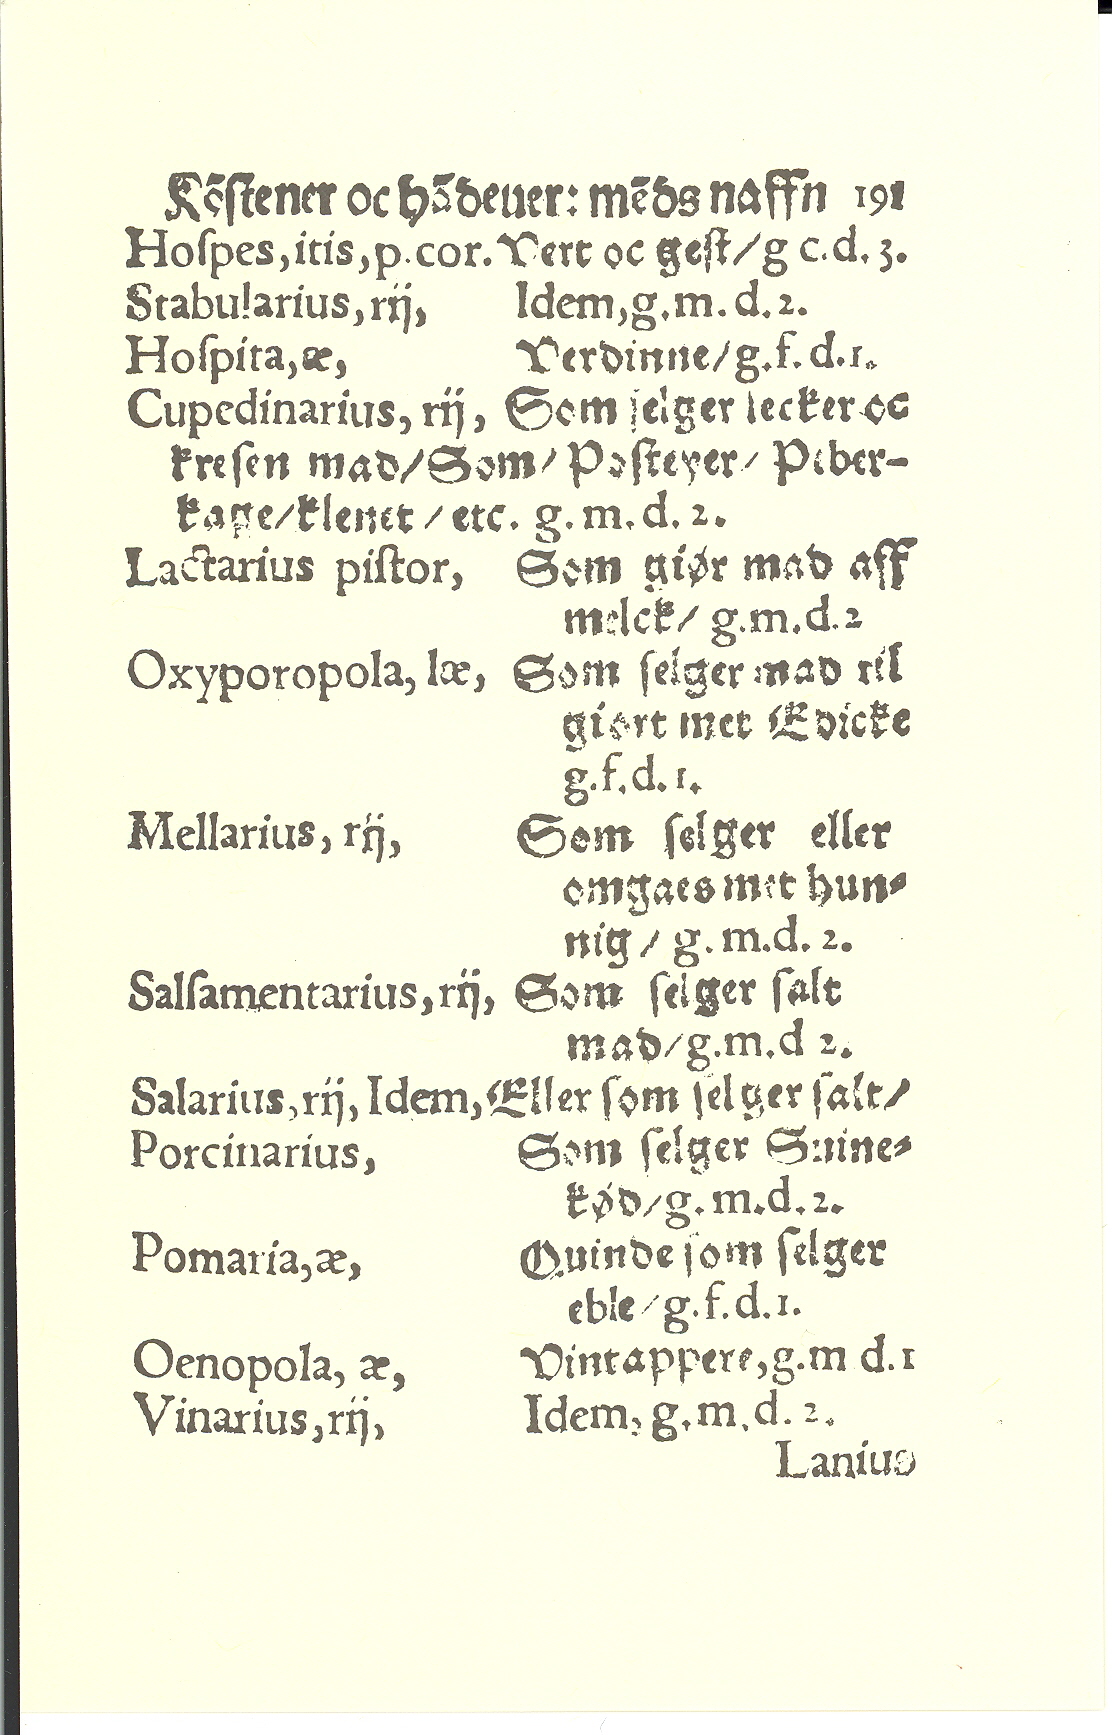 Kōſtener oc hādeuer: mēds naffn 191
Hoſpes, itis, p. cor. Vert oc geſt/ g c. d. 3.
Stabularius, rij, Idem, g. m. d. 2.
Hoſpita, æ, Verdinne/ g. f. d. 1.
Cupedinarius, rij, Som ſelger lecker oc
kreſen mad/ Som/ Poſteyer/ Peber-
kage/ klenet / etc. g. m. d. 2.
Lactarius piſtor, Som giør mad aff
melck/ g. m. d. 2
Oxyporopola, læ, Som ſelger mad til
giort met Edicke
g. f. d. 1.
Mellarius, rij, Som ſelger eller
omgaes met hun-
nig / g. m. d. 2.
Salſamentarius, rij, Som ſelger ſalt
mad/ g. m. d 2.
Salarius, rij, Idem, Eller ſom ſelger ſalt/
Porcinarius, Som ſelger Suine-
kød/ g. m. d. 2.
Pomaria, æ, Quinde ſom ſelger
eble/ g. f. d. 1.
Oenopola, æ, Vintappere, g. m d. 1
Vinarius, rij, Idem, g. m. d. 2.
Lanius